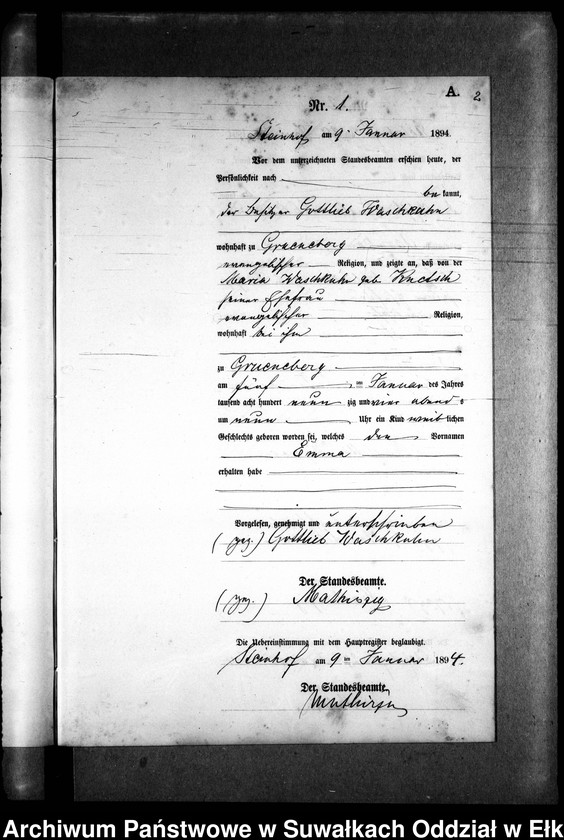 A. 2
Nr. 1.
Steinhof am 9. Januar 1894
Vor dem unterzeichneten Standesbeamten erschien heute, der
Persönlichkeit nach
bekannt,
der Besitzer Gottlieb Waschkuhn
wohnhaft zu Grueneberg
evangelischer Religion, und zeigte an, daß von der
Maria Waschkuhn geb.
seiner Ehefrau
evangelischer Religion,
wohnhaft bei ihm
zu Grueneberg
am fünf ten Januar des Jahres
tausend acht hundert neun zig und vier abends
um neun Uhr ein Kind weiblichen
Geschlechts geboren worden sei, welches den Vornamen
Emma
erhalten habe
Vorgelesen, genehmigt und unterschrieben
(gez.) Gottlieb Waschkuhn
Der Standesbeamte.
(gez.) Mathiszig
Die Uebereinstimmung mit dem Hauptregister beglaubigt.
Steinhof am 9ten Januar 1894.
Der Standesbeamte.
Archiwum Państwowe w Suwałkach Oddział w Ełk